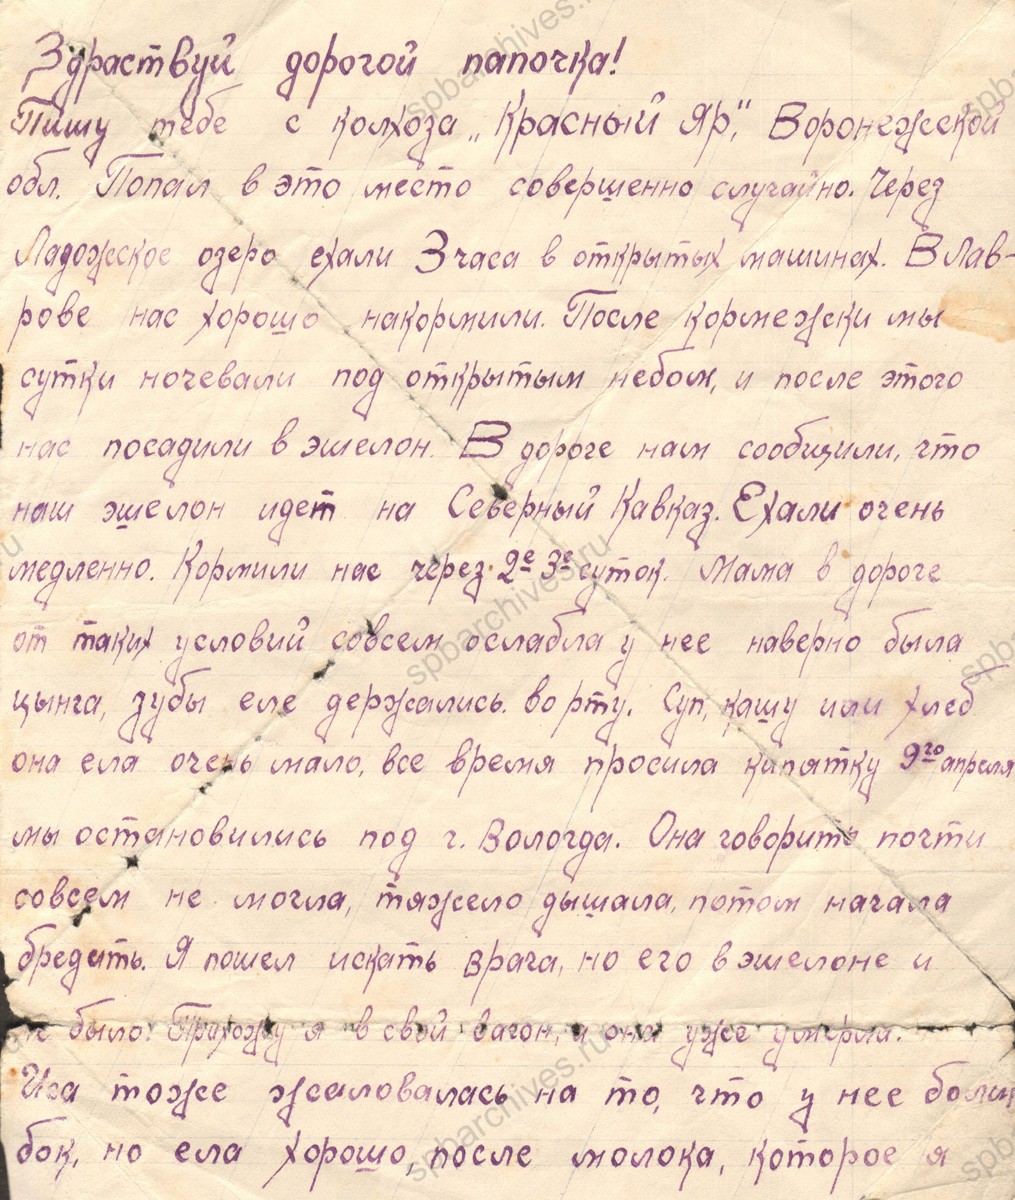 Здраствуй дорогой папочка!
Пишу тебе с колхоза „Красный Яр", Воронежской
обл. Попал в это место совершенно случайно. Через
Ладожское озеро ехали 3 часа в открытых машинах. В Лав-
рове нас хорошо накормили. После кормежки мы
сутки ночевали под открытым небом, и после этого
нас посадили в эшелон. В дороге нам сообщили, что
наш эшелон идет на Северный Кавказ. Ехали очень
медленно. Кормили нас через 2е 3е суток. Мама в дороге
от таких условий совсем ослабла у нее наверно была
цынга, зубы еле держались во рту. Суп, кашу или хлеб
она ела очень мало, все время просила кипятку 9го апреля
мы остановились под г. Вологда. Она говорить почти
совсем не могла, тяжело дышала, потом начала
бредить. Я пошел искать врача, но его в эшелоне и
не было. Прихожу я в свой вагон, и она уже умерла.
Ира тоже жаловалась на то, что у нее болит
бок, но ела хорошо, после молока, которое я
spbarchives.ru